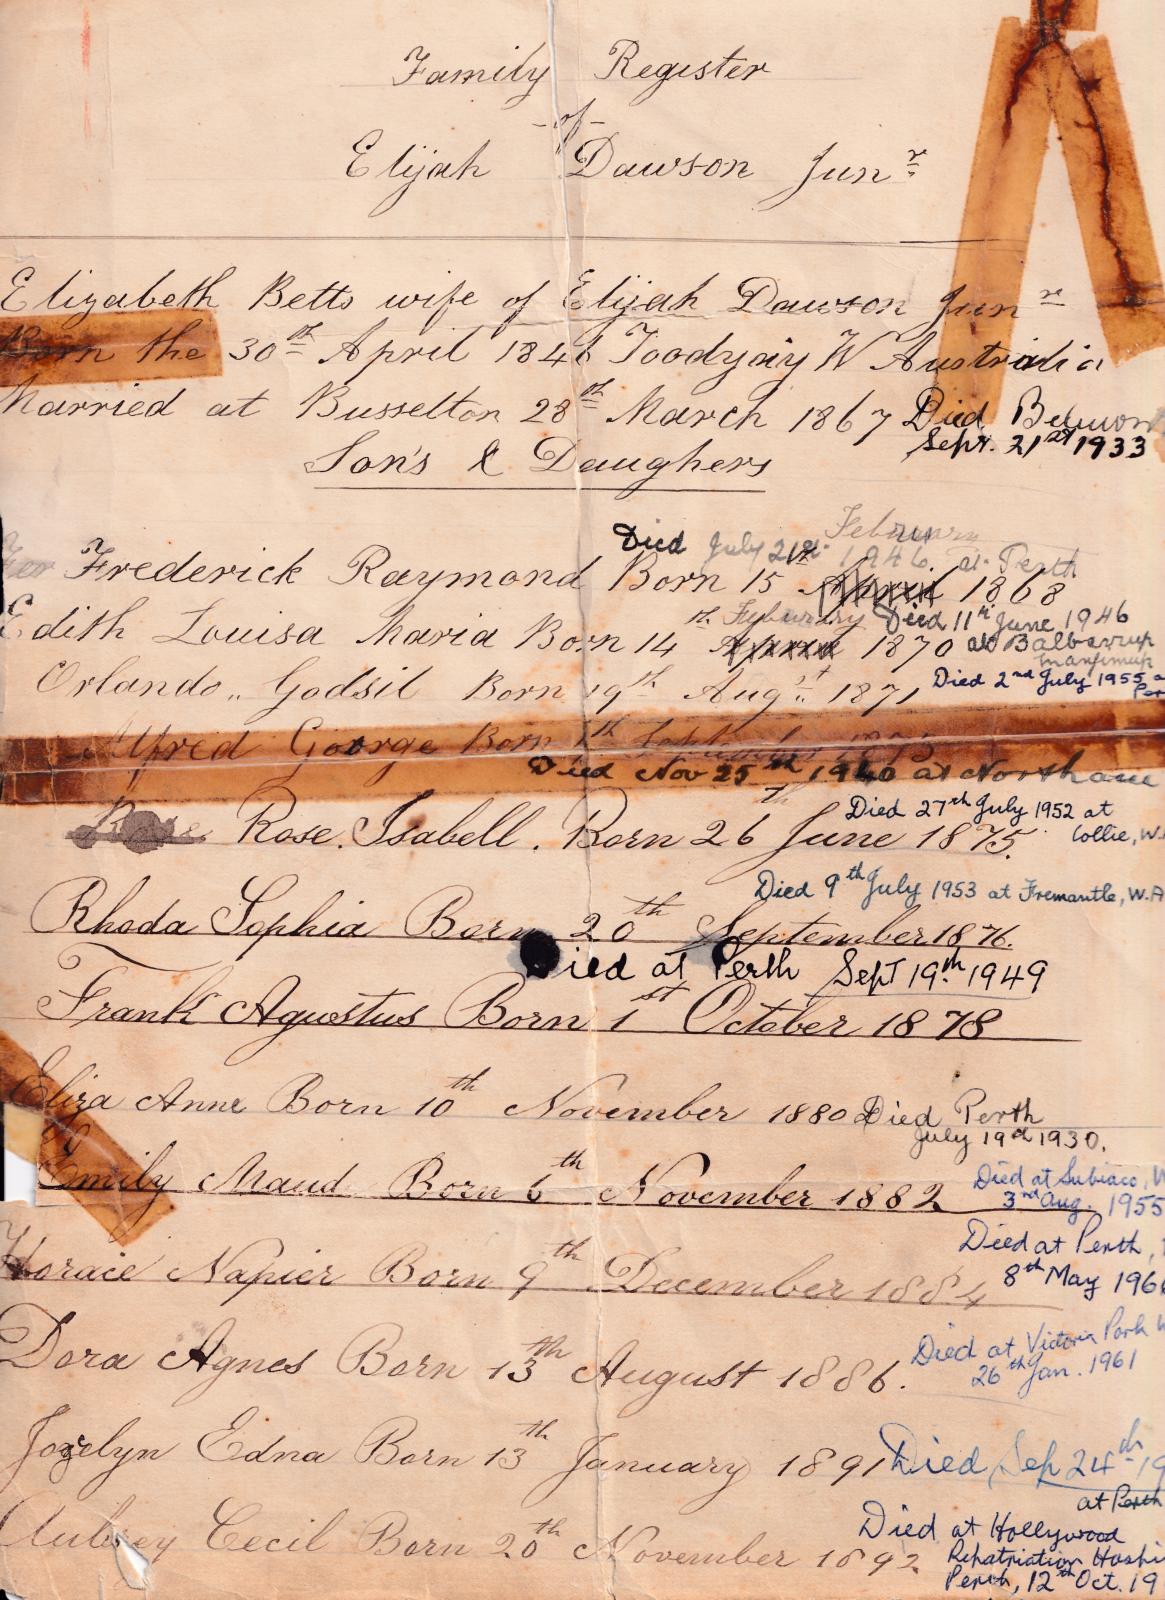 Family Register
- of -
Elijah Dawson Junr
Elizabeth Betts wife of Elijah Dawson Junr
Born the 30th April 1846 Toodyay W Australia
Married at Busselton 28th March 1867 Died
Sept. 21st 1933
Son's & Daughers
February
Died July 21st 1946 at Perth
Frederick Raymond Born 15 1868
Died 11th June 1946
Edith Louisa Maria Born 14 1870 at Balbarrup
Manjimup
Died 2nd July 1955
Orlando Godsil Born 19th Augst 1871
Alfred George Born
Died Nov 25th 1940 at Northam
Died 27th July 1952 at
Collie, W.A
Rose Rose. Isabell. Born 26th June 1875.
Died 9th July 1953 at Fremantle, W.A
Rhoda Sophia Born 20th September 1876.
Died at Perth Sept 19th 1949
Frank Agustus Born 1st October 1878
Eliza Anne Born 10th November 1880 Died Perth
July 19d 1930.
Emily Maud Born 6th November 1882
Died at Subiaco, W
3rd Aug. 1955
Died at Perth,
8th May 196
Horace Napier Born 9th December 1884
Died at Victoria Park W
26th Jan. 1961
Dora Agnes Born 13th August 1886.
Jozelyn Edna Born 13th January 1891 Died Sep 24th 19
at Perth
Died at Hollywood
Repatriation Hospi
Perth, 12th Oct. 19
Aubrey Cecil Born 20th November 1892